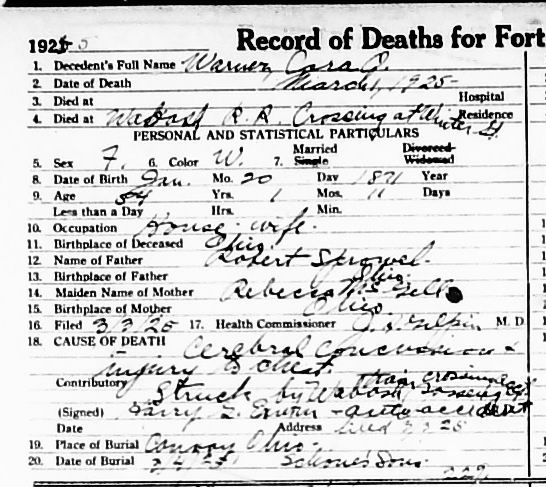 1925 Record of Deaths for Fort
1. Decedent's Full Name Warner, Cora O.
2. Date of Death March 1, 1925
3. Died at Hospital
4. Died at Wabash R.R. Crossing at Winter St. Residence
PERSONAL AND STATISTICAL PARTICULARS
5. Sex F. 6. Color W. 7. Married Single Divorced Widowed
8. Date of Birth Jan. Mo. 20 Day 1871 Year
9. Age 54 Yrs. 1 Mos. 11 Days
Less than a Day Hrs. Min.
10. Occupation House-wife.
11. Birthplace of Deceased Ohio
12. Name of Father Robert Sprowel.
13. Birthplace of Father Ohio.
14. Maiden Name of Mother Rebecca
15. Birthplace of Mother Ohio
16. Filed 3/3/25 17. Health Commissioner M. D.
18. CAUSE OF DEATH Cerebral Concussion +
injury to chest
Contributory Struck by Wabash train crossing
(Signed) Harry auto accident
Date Address
19. Place of Burial Convoy Ohio.
20. Date of Burial 3/4/25 Sons